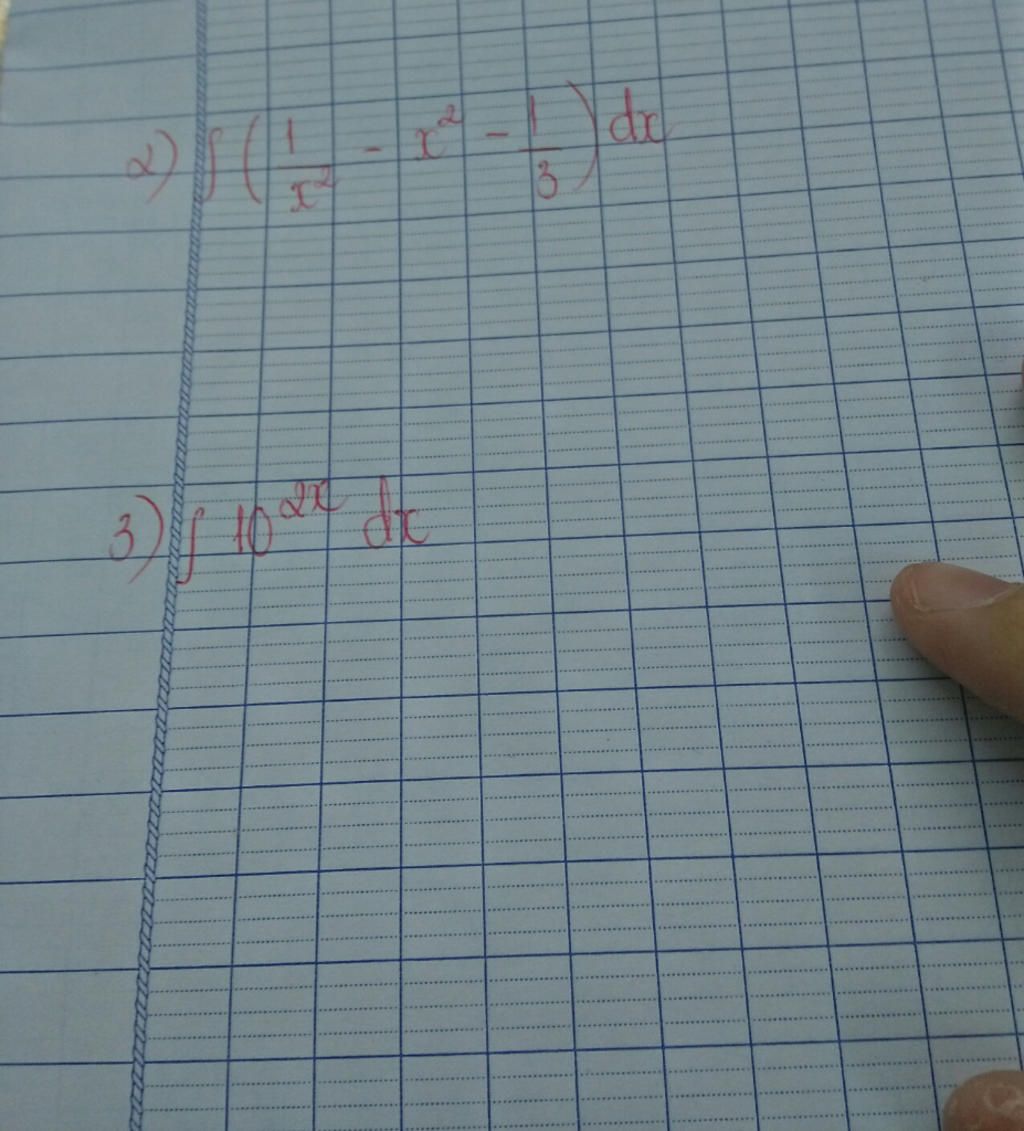 2) ∫ ( 1/x² - x² - 1/3 ) dx
3) ∫ 10^2x dx